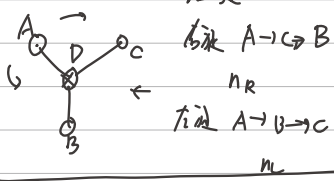 A
D
C
B
右旋 A→C→B
nR
左旋 A→B→C
nL